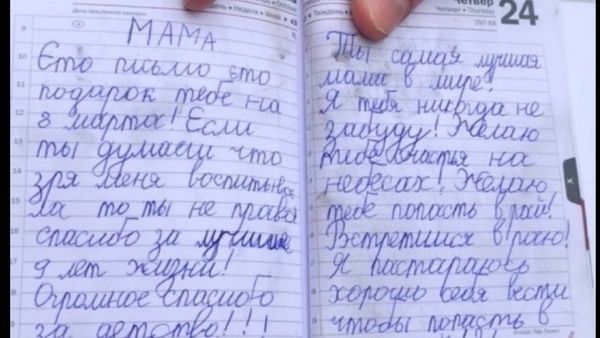 День працівників реклами
День • Неделя • Week • 43
МАМА
Єто письмо єто
подарок тебе на
8 марта! Если
ты думаеш что
зря меня воспитыва
ла то ты не права
спасибо за лучшие
9 лет жизни!
Огромное спасибо
за детство!!!
Четвер
Четверг • Thursday
297-68
24
Ты самая лучшая
мама в мире!
Я тебя никогда не
забуду! Желаю
тебе счастья на
небесах! Желаю
тебе попасть в рай!
Встретимся в раю!
Я пастараюсь
хорошо себя вести
чтобы попасть в